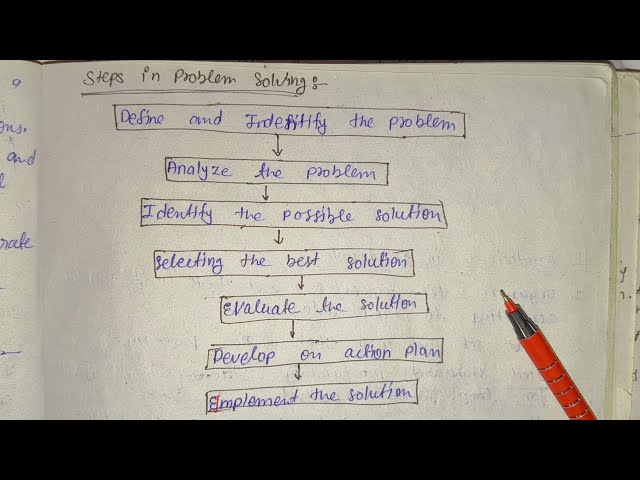 Steps in Problem Solving:-
Define and Indefitify the problem
Analyze the problem
Identify the possible solution
Selecting the best solution
Evaluate the solution
Develop on action plan
Implement the solution
and
rate